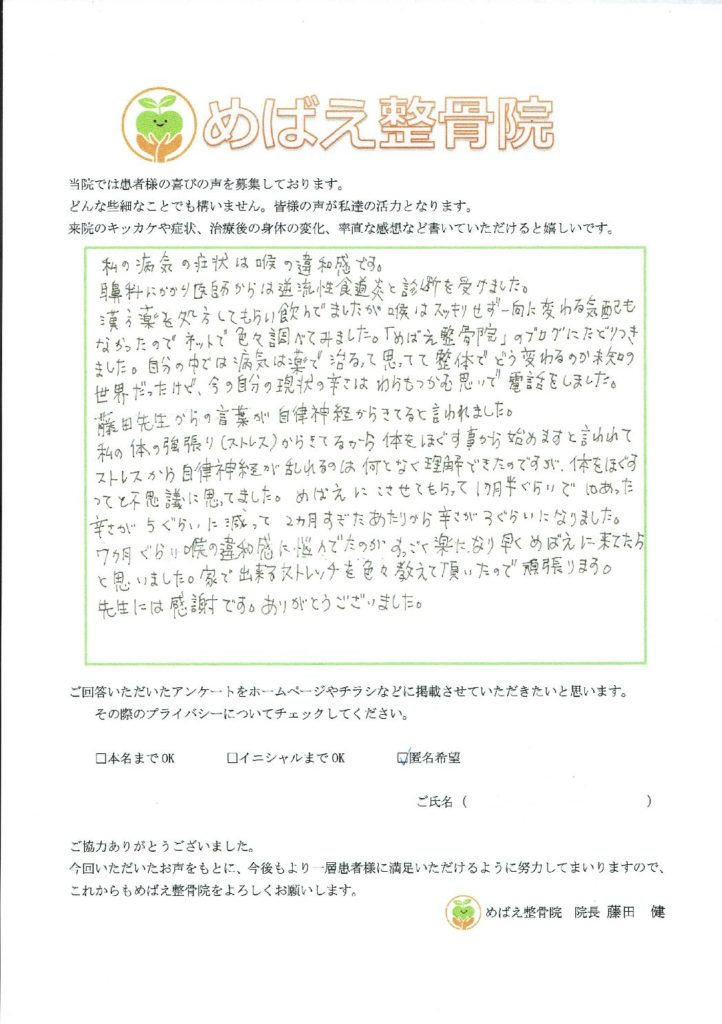 めばえ整骨院
当院では患者様の喜びの声を募集しております。
どんな些細なことでも構いません。皆様の声が私達の活力となります。
来院のキッカケや症状、治療後の身体の変化、率直な感想など書いていただけると嬉しいです。
私の病気の症状は喉の違和感です。
耳鼻科にかかり医師からは逆流性食道炎と診断を受けました。
漢方薬を処方してもらい飲んでましたが喉はスッキリせず一向に変わる気配も
なかったのでネットで色々調べてみました。「めばえ整骨院」のブログにたどりつき
ました。自分の中では病気は薬で治るって思ってて整体でどう変わるのか未知の
世界だったけど、今の自分の現状の辛さはわらもつかむ思いで電話をしました。
藤田先生からの言葉が自律神経からきてると言われました。
私の体の強張り(ストレス)からきてるから体をほぐす事から始めますと言われて
ストレスから自律神経が乱れるのは何となく理解できたのですが、体をほぐす
ってと不思議に思ってました。めばえにこさせてもらって1ヶ月半ぐらいで10あった
辛さが5ぐらいに減って2ヵ月すぎたあたりから辛さが3ぐらいになりました。
7ヵ月ぐらい喉の違和感に悩んでたのがすっごく楽になり早くめばえに来てたら
と思いました。家で出来るストレッチを色々教えて頂いたので頑張ります。
先生には感謝です。ありがとうございました。
ご回答いただいたアンケートをホームページやチラシなどに掲載させていただきたいと思います。
その際のプライバシーについてチェックしてください。
□本名までOK □イニシャルまでOK ☑匿名希望
ご氏名( )
ご協力ありがとうございました。
今回いただいたお声をもとに、今後もより一層患者様に満足いただけるように努力してまいりますので、
これからもめばえ整骨院をよろしくお願いします。
めばえ整骨院 院長 藤田 健